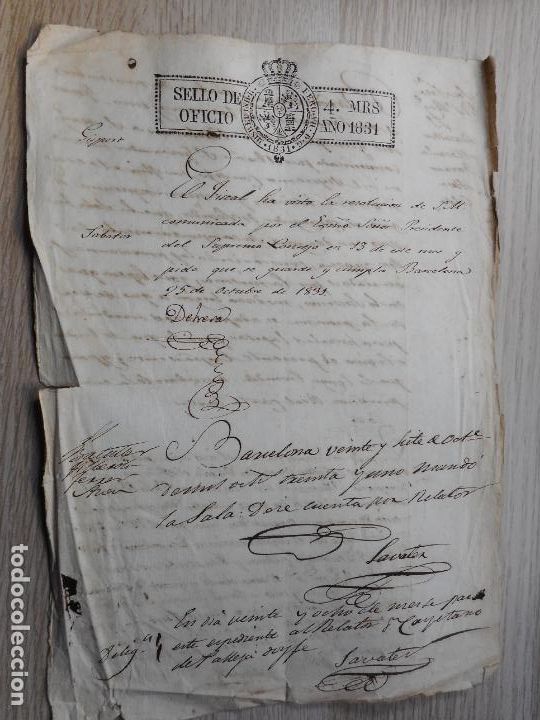 SELLO DE OFICIO
4. MRS AÑO 1831
1831
El Fiscal ha visto la resolucion de S. M.
comunicada por el Exmo Señor Presidente
Sabater
del Supremo Consejo en 13 de este mes y
pide que se guarde y cumpla Barcelona
25 de Octubre de 1831
Barcelona veinte y siete de Octe
de mil ocho treinta y uno mandó
la Sala: Dese cuenta por Relator
Savater
En dia veinte y ocho de mes se pasó
este expediente al Relator Dn Cayetano
Dilig.a
de doyfe
Savater
todocoleccion.net